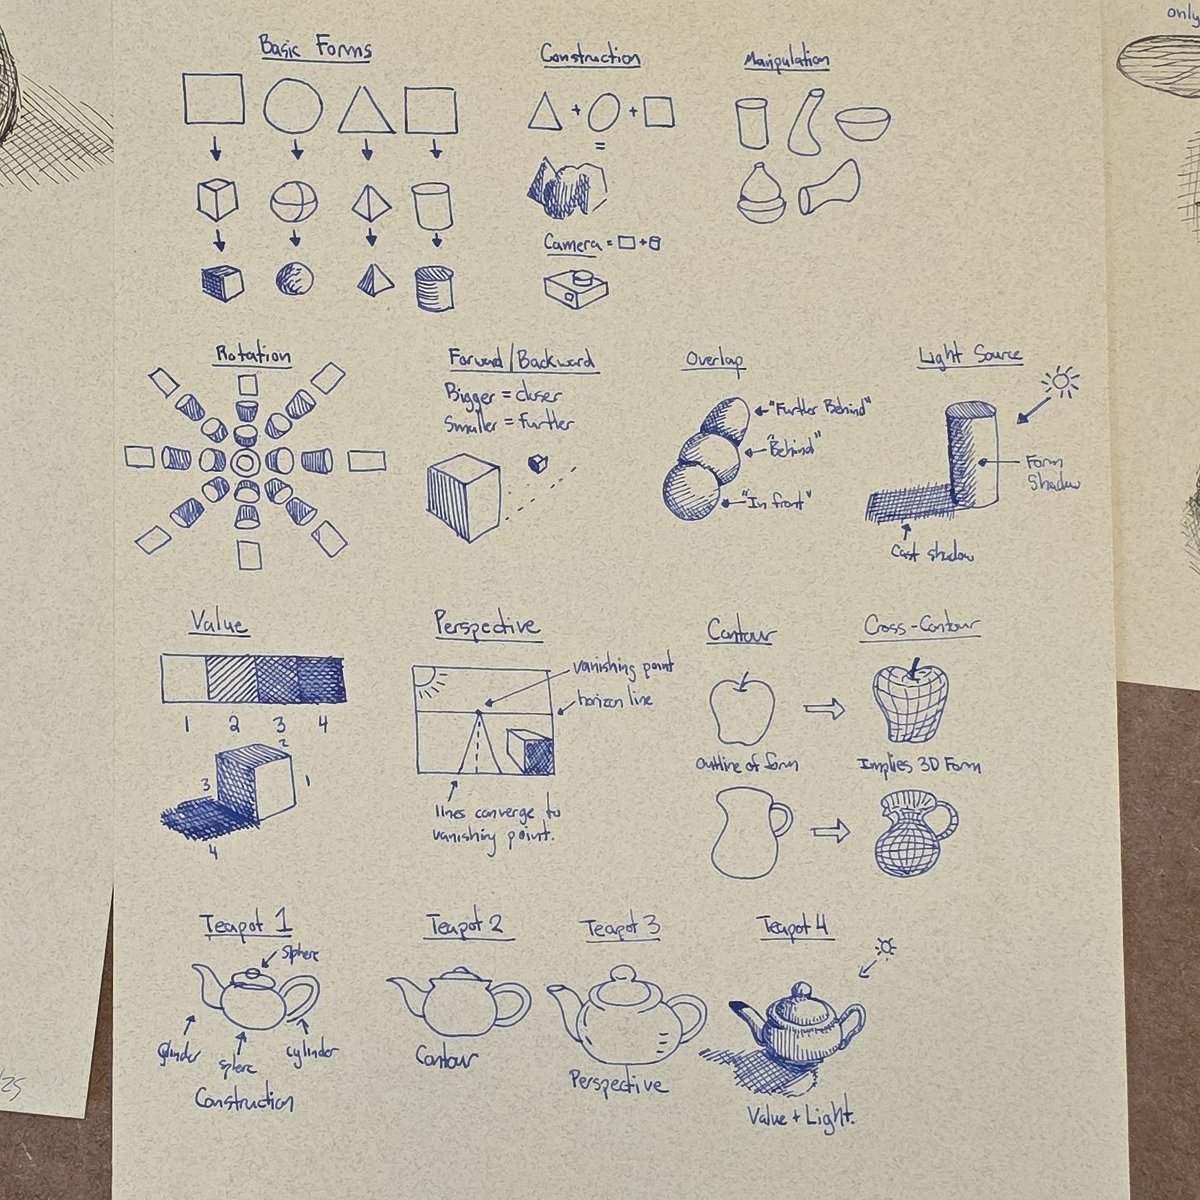 only
Basic Forms
Construction
Manipulation
+ +
=
Camera = +
Rotation
Forward/Backward
Bigger = closer
Smaller = further
Overlap
"Further Behind"
"Behind"
"In front"
Light Source
Form
Shadow
Cast shadow
Value
1 2 3 4
2
3
1
4
Perspective
vanishing point
horizon line
lines converge to
vanishing point.
Contour
Outline of form
Cross-Contour
Implies 3D Form
Teapot 1
Sphere
cylinder
sphere
cylinder
Construction
Teapot 2
Contour
Teapot 3
Perspective
Teapot 4
Value + Light.
/25